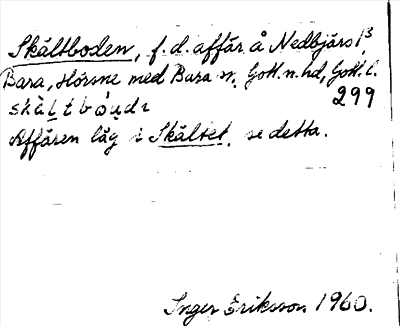 Skältboden, f.d. affär å Nedbjärs 1³,
Bara, Hörsne med Bara sn, Gotl. n. hd, Gotl. l.
299
skàltbòudɩ
Affären låg i Skältet, se detta.
Inger Eriksson 1960.